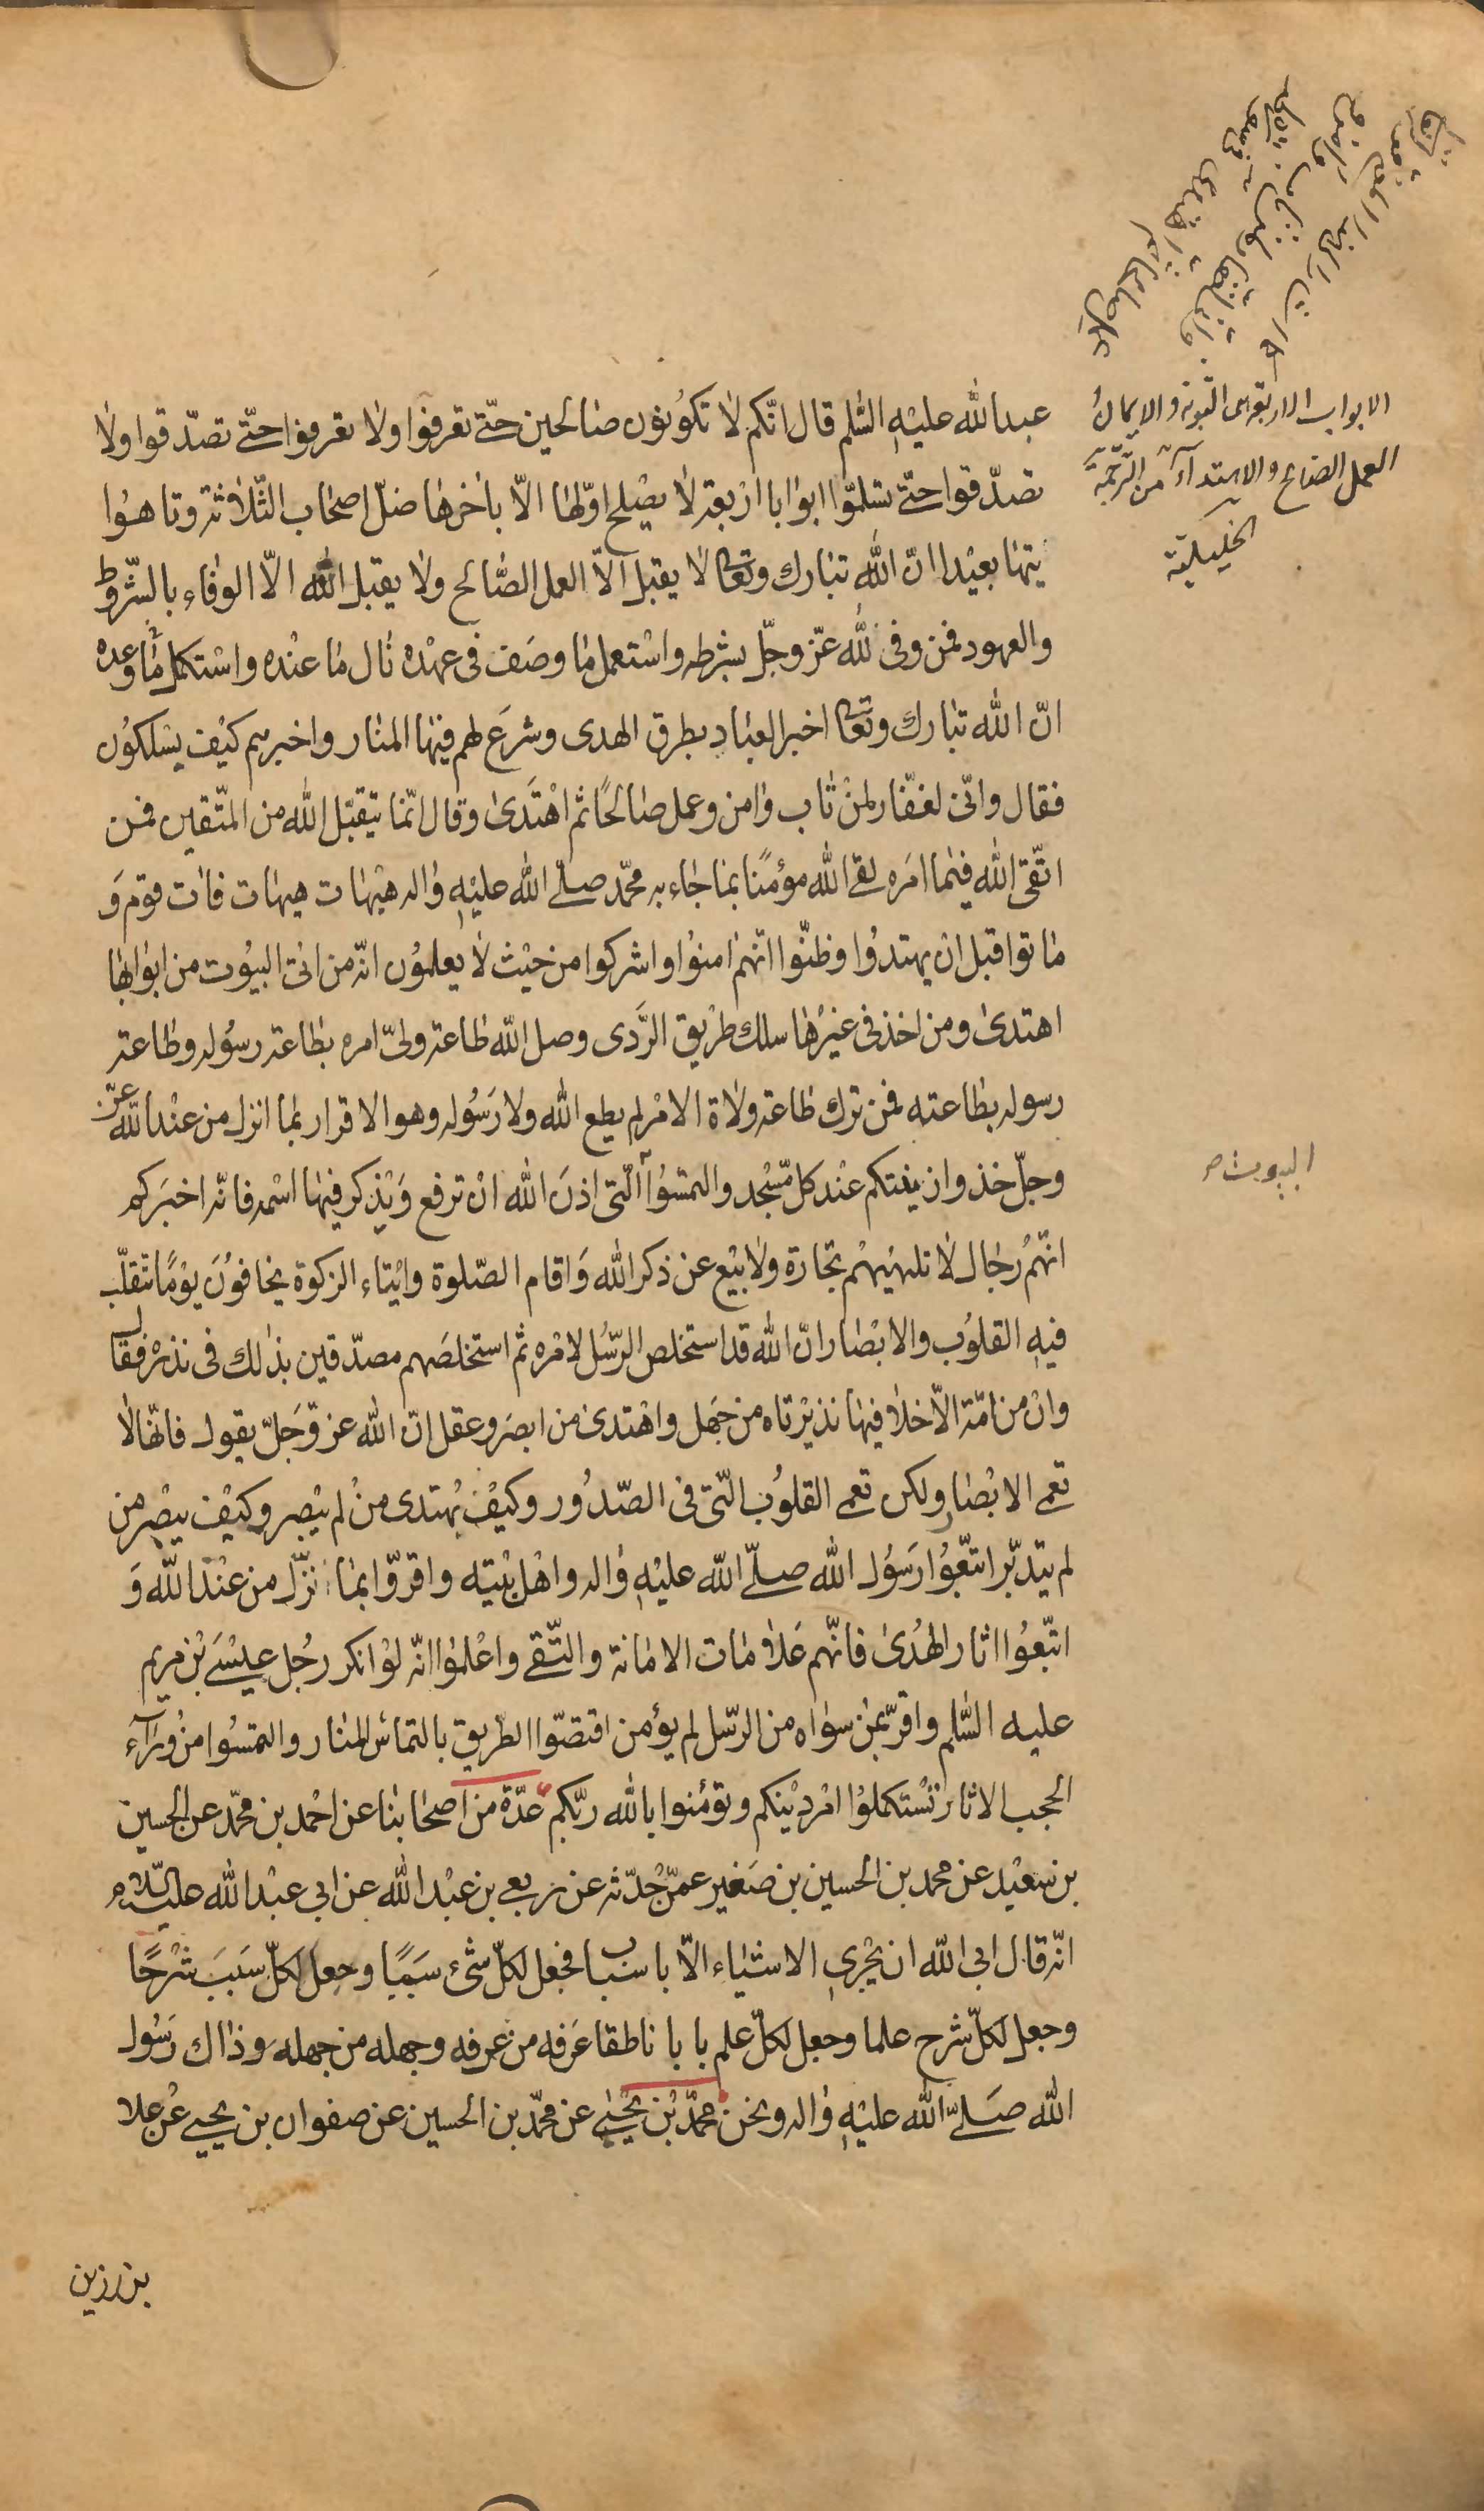 الابواب الاربعة هى التوبة والايمان
العمل الصالح والاهتداء من الترجمة
الخليلية
عبد الله عليه السّلم قال انّكم لا تكونون صالحين حتّى تعرفوا ولا تعرفوا حتّى تصدّقوا ولا
تصدّقوا حتّى تسلمّوا ابوابا اربعة لا يصلح اوّلها الّا باخرها ضلّ اصحاب الثّلاثة وتاهوا
تيها بعيدا انّ الله تبارك وتعالى لا يقبل الّا العمل الصّالح ولا يقبل الله الّا الوفاء بالشّروط
والعهود فمن وفى لله عزّ وجلّ بشرطه واستعمل ما وصف فى عهده نال ما عنده واستكمل ما وعده
انّ الله تبارك وتعالى اخبر العباد بطرق الهدى وشرع لهم فيها المنار واخبرهم كيف يسلكون
فقال وانّى لغفّار لمن تاب وامن وعمل صالحًا ثم اهتدى وقال انّما يتقبّل الله من المتّقين فمن
اتّقى الله فيما امره لقى الله مؤمنًا بما جاء به محمّد صلّى الله عليه واله هيهات هيهات فات قوم وَ
ماتوا قبل ان يهتدوا وظنّوا انّهم امنوا واشركوا من حيث لا يعلمون انّه من اتى البيوت من ابوابها
اهتدى ومن اخذ فى غيرها سلك طريق الرّدى وصل الله طاعة ولىّ امره بطاعة رسوله وطاعة
رسوله بطاعته فمن ترك طاعة ولاة الامر لم يطع الله ولا رسوله وهو الاقرار بما انزل من عند الله عزّ
وجلّ خذوا زينتكم عند كلّ مسجد والتمسوا الّتى اذن الله ان ترفع ويذكر فيها اسمه فانّه اخبركم
البيوت ص
انّهم رجال لا تلهيهم تجارة ولا بيع عن ذكر الله واقام الصّلوة وايتاء الزكوة يخافون يومًا تتقلّب
فيه القلوب والابصار انّ الله قد استخلص الرّسل لامره ثم استخلصهم مصدّقين بذلك فى نذره فقال
وان من امّة الّا خلا فيها نذير تاه من جهل واهتدى من ابصر وعقل انّ الله عزّ وجلّ يقول فانّها لا
تعمى الابصار ولكن تعمى القلوب الّتى فى الصّدور وكيف يهتدى من لم يبصر وكيف يبصر من
لم يتدبّر اتّبعوا رسول الله صلّى الله عليه واله واهل بيته واقرّوا بما نزّل من عند الله وَ
اتّبعوا اثار الهدى فانّهم علامات الامانة والتّقى واعلموا انّه لو انكر رجل عيسى بن مريم
عليه السّلم واقرّ بمن سواه من الرّسل لم يؤمن اقتصّوا الطريق بالتماس المنار والتمسوا من وراء
الحجب الاثار تستكملوا امر دينكم وتؤمنوا بالله ربّكم عدّة من اصحابنا عن احمد بن محمّد عن الحسين
بن سعيد عن محمد بن الحسين بن صغير عمّن حدّثه عن ربعى بن عبد الله عن ابى عبد الله عليه السّلام
انّه قال ابى الله ان يجرى الاشياء الّا باسباب فجعل لكلّ شىء سببًا وجعل لكلّ سبب شرحًا
وجعل لكلّ شرح علما وجعل لكلّ علم بابا ناطقا عرفه من عرفه وجهله من جهله وذاك رسول
الله صلّى الله عليه واله ونحن محمّد بن يحيى عن محمّد بن الحسين عن صفوان بن يحيى عن علا
بن رزين